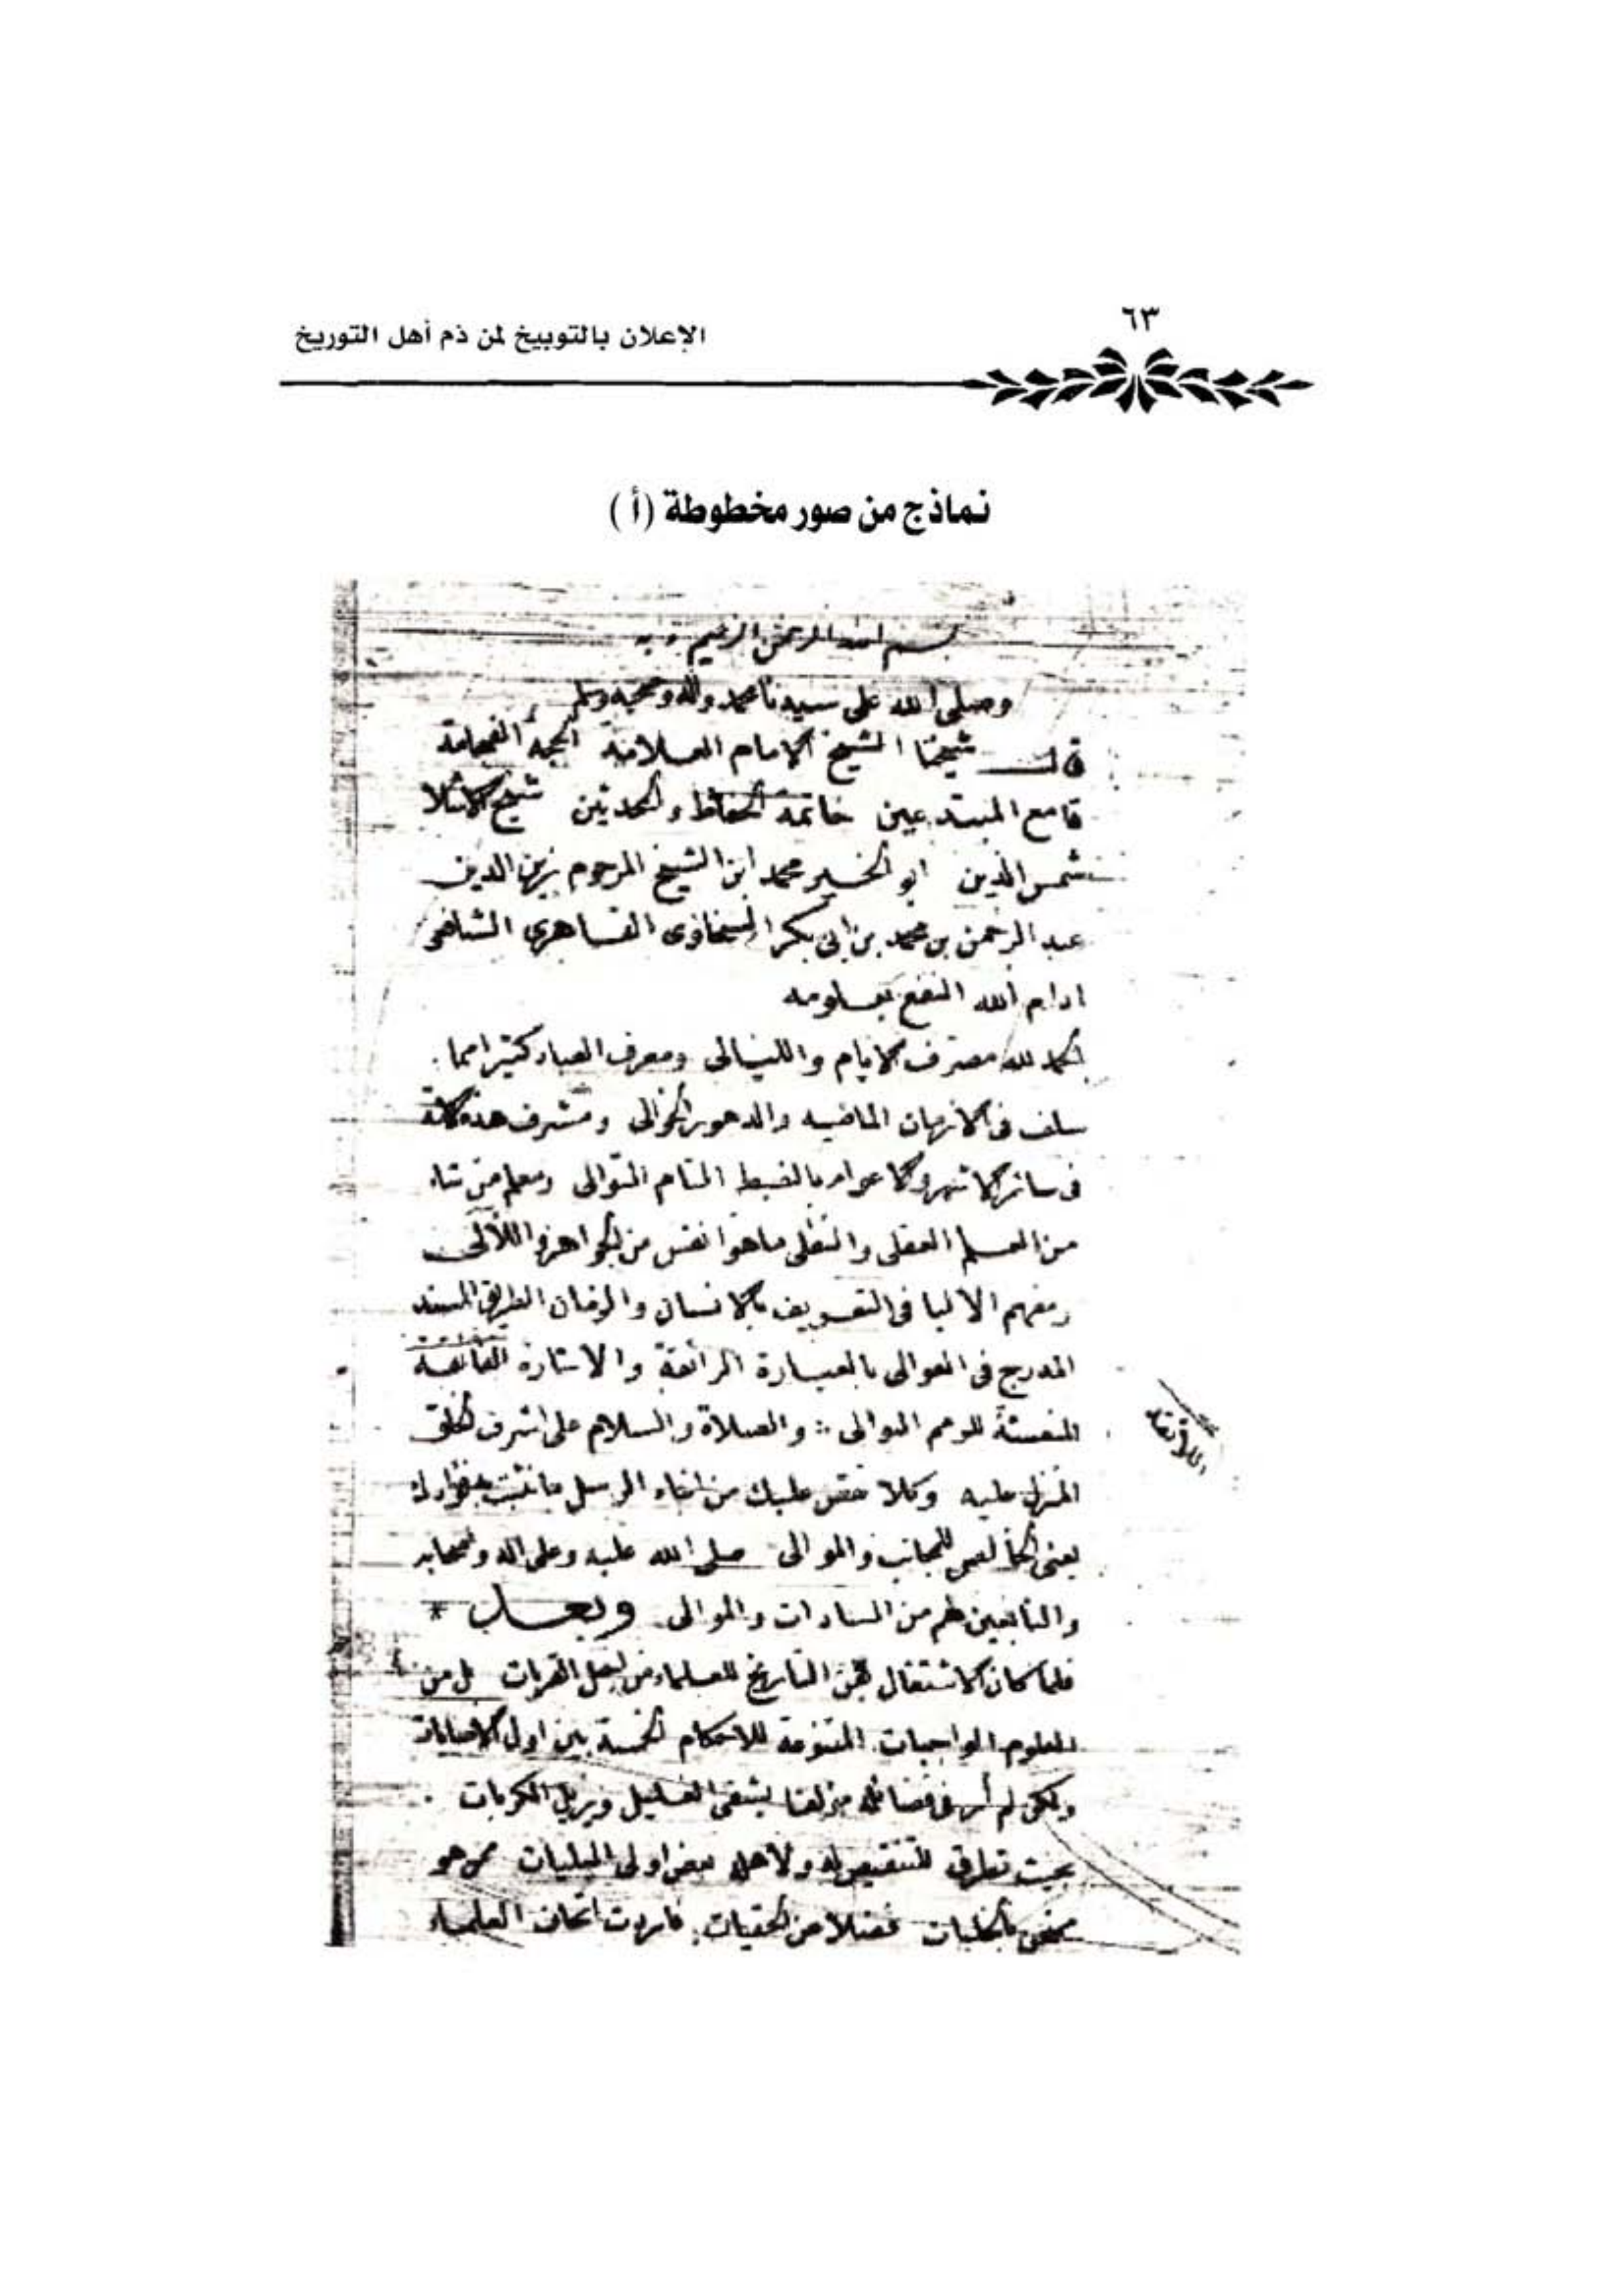 ٦٣
الإعلان بالتوبيخ لمن ذم أهل التوريخ
نماذج من صور مخطوطة (أ)
بسم الله الرحمن الرحيم
وصلى الله على سيدنا محمد واله وصحبه وسلم
قال شيخنا الشيخ الامام العلامة الحجه الفهامة
قامع المبتدعين خاتمة الحفاظ والمحدثين شيخ الاسلام
شمس الدين ابو الخير محمد ابن الشيخ المرحوم زين الدين
عبد الرحمن بن محمد بن ابى بكر السخاوى القاهرى الشافعى
ادام الله النفع بعلومه
الحمد لله مصرف الايام والليالى ومعرف العباد كثيرا مما
سلف فى الازمان الماضيه والدهور الخوالى ومشرف هذه الامة
فى سائر الاشهر والاعوام بالضبط التام المتوالى ومعلم من شاء
من العلم العقلى والنقلى ما هو انفس من الجواهر واللآلى
ومفهم الالبا فى التعريف بالانسان والزمان الطريق المسند
المدرج فى العوالى بالعبارة الرائقة والاشارة الفائقة
المنعشة للرمم البوالى والصلاة والسلام على اشرف الخلق
المنزل عليه وكلا نقص عليك من انباء الرسل ما نثبت به فؤادك
يعنى للمجانب والموالى صلى الله عليه وعلى اله واصحابه
والتابعين لهم من السادات والموالى وبعد *
فلما كان الاشتغال بفن التاريخ للعلماء من اجل القربات بل من
العلوم الواجبات المتنوعة للاحكام الخمسة بين اولى الاصابات
ولكن لم أر فى فضائله مؤلفا يشفى الغليل ويزيل الكربات
بحيث تطرق للتنقيص له ولاهله بعض اولى البليات ممن هو
ممتحن بالجليات فضلا عن الخفيات فاردت اتحاف العلماء